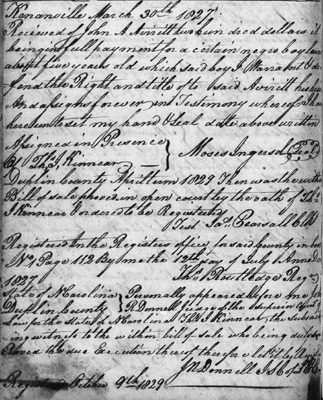 Kenanville March 30th 1827
Recieved of John A Averitt two hundred dollars it
being in full payment for a certain negro boy
about five years old which said boy I Warrant & de
fend the Right and title of to said Averitt his
And assigns forever in Testimony whereof I ha
hereunto set my hand & seal date above written
Signed in Presence
of Thos J. Kinnear } Moses Ingersol
Duplin County April term 1827 Then was the within
Bill of sale proved in open court by the oath of Thos
J Kinnear Ordered to be Registered
Test Jas Pearsall Clk
Registered In the Registers office for said County in book
No Page 112 By me the 12th day of July Anno D
1827
Thos Routledge Reg
State of N Carolina } Personally appeared before me
Duplin County } R Donnell Judge of the
Law for the State of Thos J Kinnear, the subscri
ing witness to the within bill of sale who being duly
proved the due Execution thereof therefore let it be
J R Donnell
Registered October 9th 1829